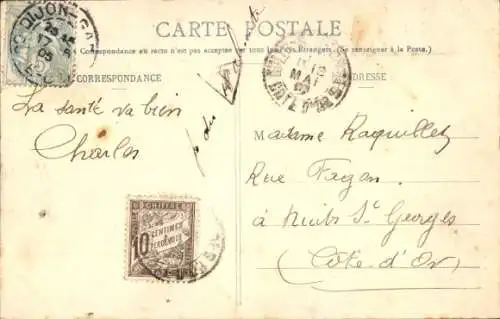 CARTE POSTALE
La Correspondance au recto n'est pas acceptée par tous les Pays Etrangers. (Se renseigner à la Poste.)
CORRESPONDANCE
ADRESSE
DIJON-GARE
La santé va bien
Charles
Madame Raquillet
Rue Fagon
à Nuits St Georges
(Côte-d'Or)
CHIFFRE
10
CENTIMES
A
PERCEVOIR
MAI
COTE D'OR